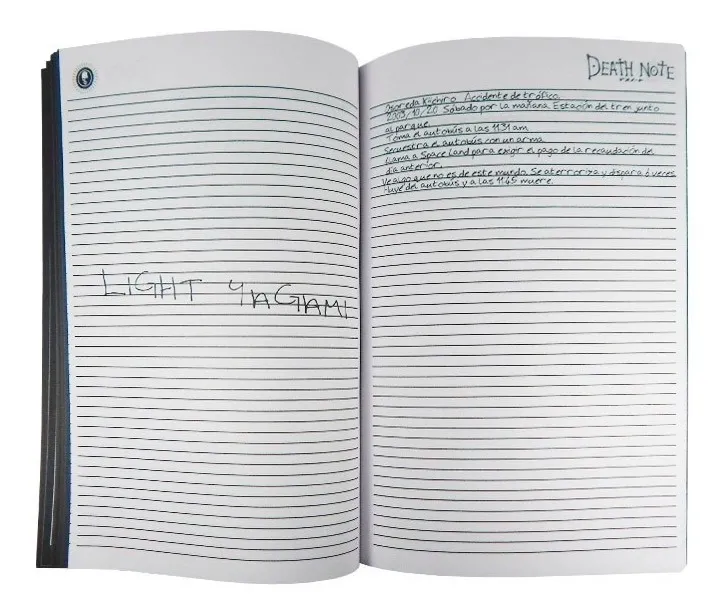 LIGHT YAGAMI
DEATH NOTE
Osoreda Kiichiro Accidente de tráfico.
2003/10/20 Sábado por la mañana. Estación del tren junto
al parque.
Toma el autobús a las 11:31 am
Secuestra el autobús con un arma
Llama a Space Land para exigir el pago de la recaudación del
día anterior.
Ve algo que no es de este mundo. Se aterroriza y dispara 6 veces
Huye del autobús y a las 11:45 muere.